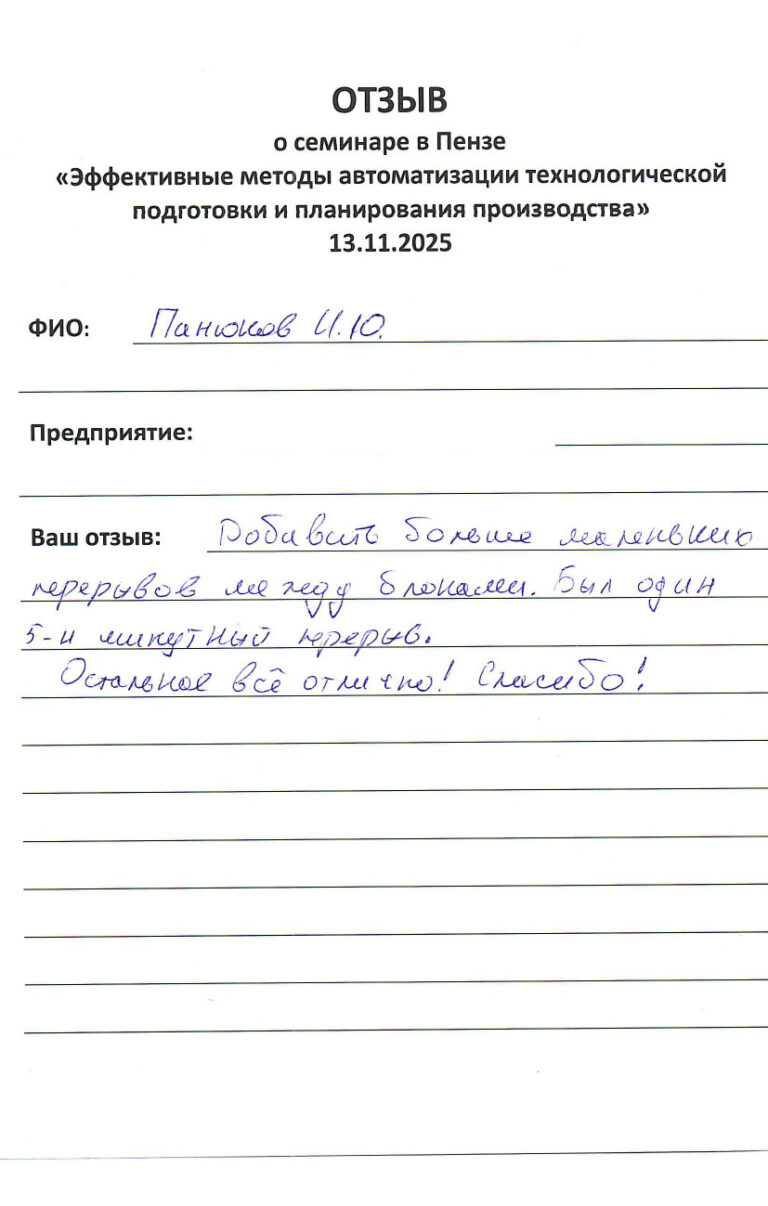 ОТЗЫВ
о семинаре в Пензе
«Эффективные методы автоматизации технологической
подготовки и планирования производства»
13.11.2025
ФИО: Панюков И.Ю.
Предприятие:
Ваш отзыв: Добавить больше маленьких
перерывов между блоками. Был один
5-и минутный перерыв.
Остальное всё отлично! Спасибо!